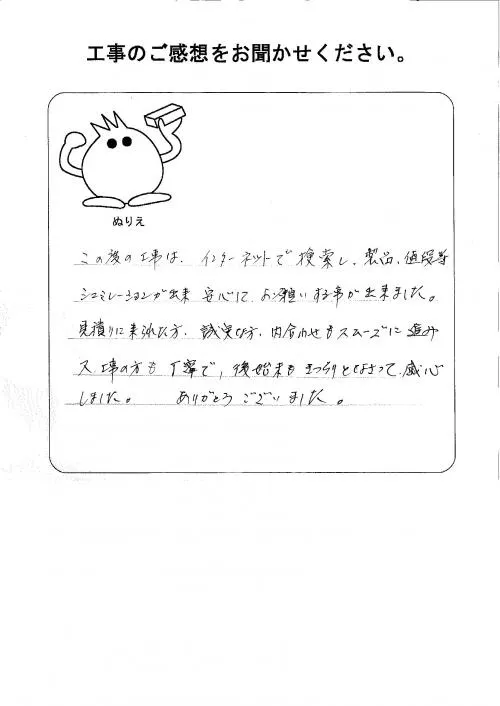 工事のご感想をお聞かせください。
ぬりえ
この度の工事は、インターネットで検索し、製品、値段等
シュミレーションが出来 安心して お願いする事が出来ました。
見積りに来られた方、誠実な方、内合わせもスムーズに進み
又 工事の方も丁寧で、後始末もきっちりとなさって、感心
しました。 ありがとうございました。